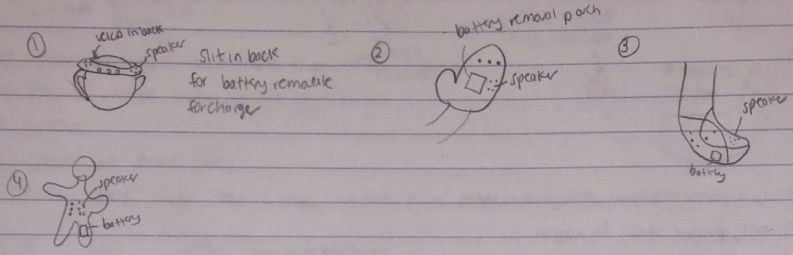 1
velcro in back
speaker
slit in back
for battery removale
for charger
2
battery removal porch
speaker
3
speaker
battery
4
speaker
battery